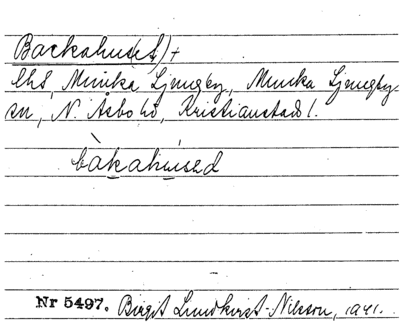 Backahuset)+
lhs, Munka Ljungby, Munka Ljungby
sn, N. Åsbo hd, Kristianstads l.
bàkahused
Nr 5497. Birgit Lundkvist-Nilsson, 1941.